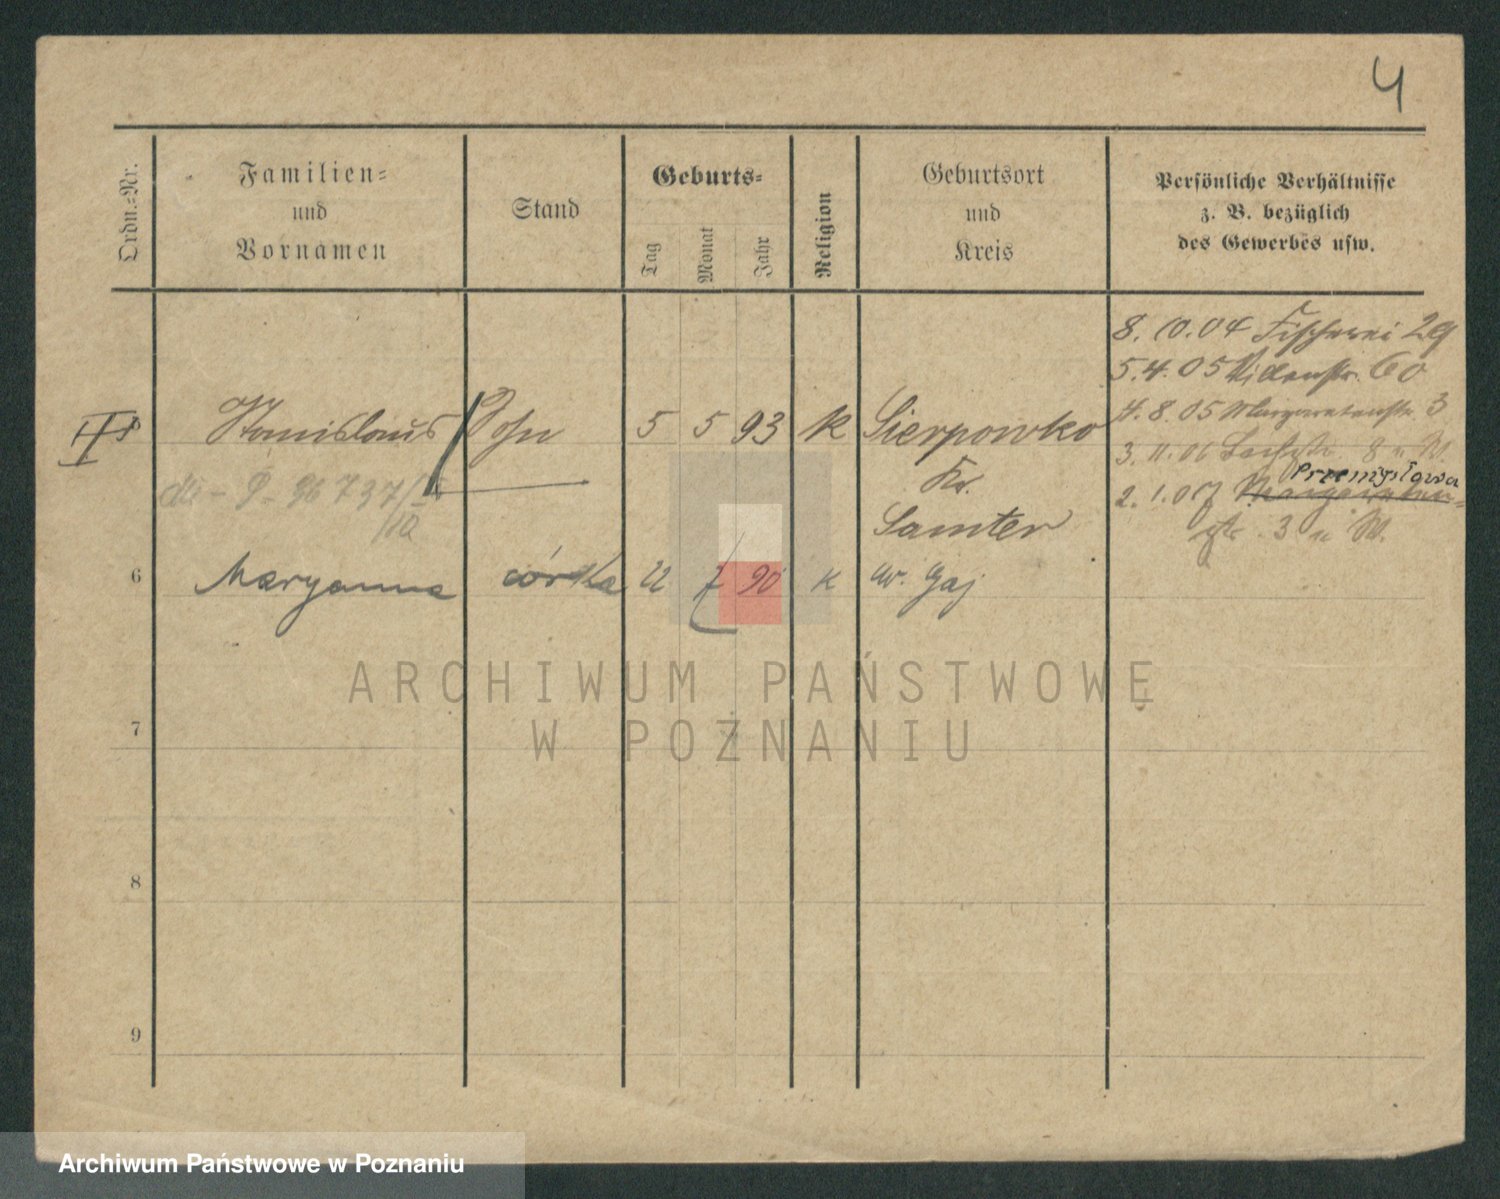 4
Ordn.-Nr.
Familien-
und
Vornamen
Stand
Geburts-
Tag
Monat
Jahr
Religion
Geburtsort
und
Kreis
Persönliche Verhältnisse
z. B. bezüglich
des Gewerbes usw.
8. 10. 04 Fischerei 29
5. 4. 05 60
4. 8. 05 Margaretenstr. 3
3. 11. 06 8 u W.
Przemysłowa
2. 1. 07 Margareten-
str. 3 u W.
Stanislaus Sohn 5 5 93 K Sierpowko
Kr.
Samter
6 Maryanna córka 22 7 90 K Gaj
7
8
9
ARCHIWUM PAŃSTWOWE
W POZNANIU
Archiwum Państwowe w Poznaniu